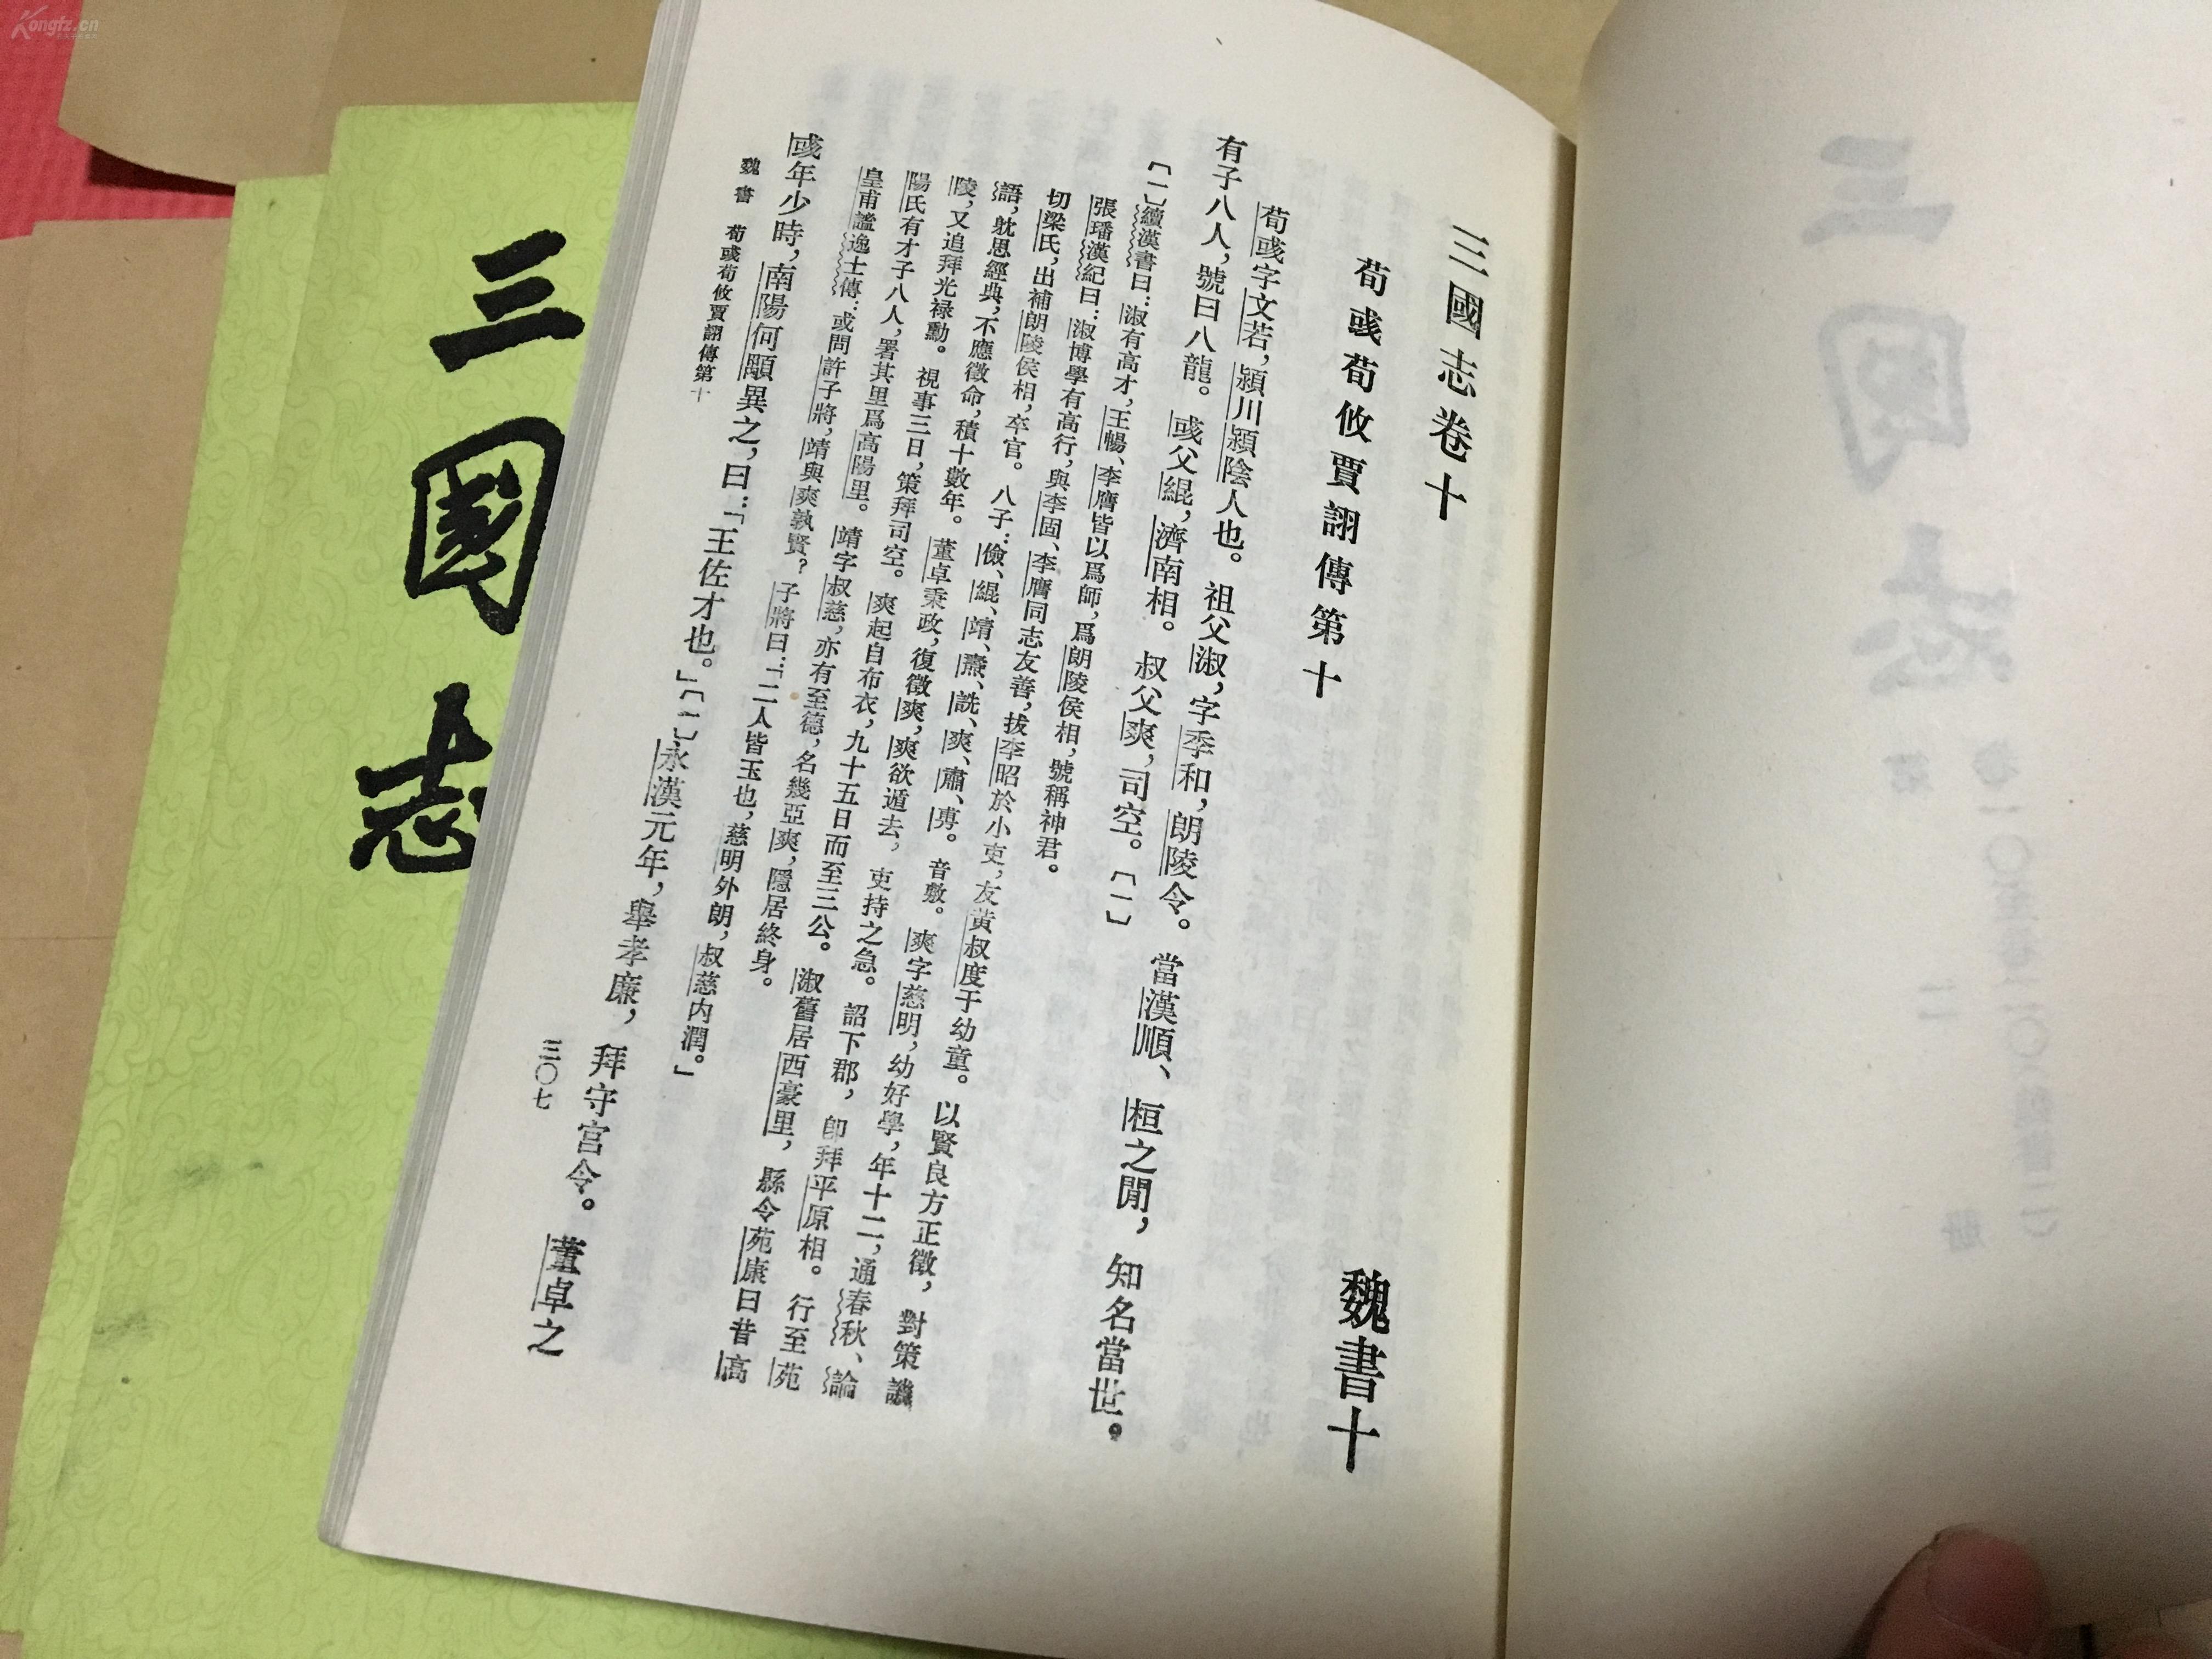 三國志卷十
魏書十
荀彧荀攸賈詡傳第十
荀彧字文若，潁川潁陰人也。祖父淑，字季和，朗陵令。當漢順、桓之閒，知名當世。
有子八人，號曰八龍。彧父緄，濟南相。叔父爽，司空。〔一〕
〔一〕續漢書曰：淑有高才，王暢、李膺皆以爲師，爲朗陵侯相，號稱神君。
張璠漢紀曰：淑博學有高行，與李固、李膺同志友善，拔李昭於小吏，友黃叔度于幼童。以賢良方正徵，對策譏
切梁氏，出補朗陵侯相，卒官。八子：儉、緄、靖、燾、詵、爽、肅、旉。音敷。爽字慈明，幼好學，年十二，通春秋、論
語，躭思經典，不應徵命，積十數年。董卓秉政，復徵爽，爽欲遁去，吏持之急。詔下郡，卽拜平原相。行至苑
陵，又追拜光祿勳。視事三日，策拜司空。爽起自布衣，九十五日而至三公。淑舊居西豪里，縣令苑康曰昔高
陽氏有才子八人，署其里爲高陽里。靖字叔慈，亦有至德，名幾亞爽，隱居終身。
皇甫謐逸士傳：或問許子將，靖與爽孰賢？子將曰：「二人皆玉也，慈明外朗，叔慈内潤。」
彧年少時，南陽何顒異之，曰：「王佐才也。」〔一〕永漢元年，舉孝廉，拜守宮令。董卓之
魏書 荀彧荀攸賈詡傳第十
三〇七
三國志
Kongfz.cn